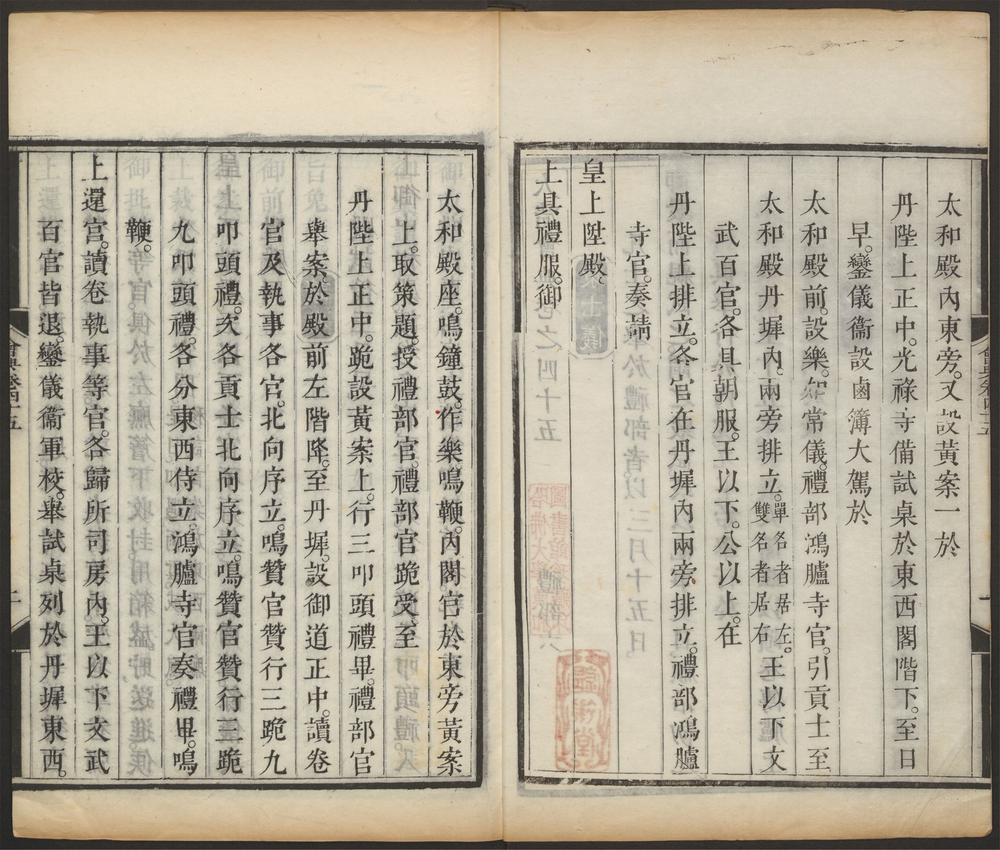 太和殿內東旁。又設黃案一於
丹陛上正中。光祿寺備試桌於東西閣階下。至日
早。鑾儀衞設鹵簿大駕於
太和殿前。設樂。如常儀。禮部鴻臚寺官。引貢士至
太和殿丹墀內。兩旁排立。單名者居左。雙名者居右。王以下文
武百官。各具朝服。王以下。公以上。在
丹陛上排立。各官在丹墀內兩旁排立。禮部鴻臚
寺官。奏請
皇上陞殿。
上具禮服。御
太和殿座。鳴鐘鼓。作樂鳴鞭。內閣官於東旁黃案
上。取策題。授禮部官。禮部官跪受。至
丹陛上正中。跪設黃案上。行三叩頭禮畢。禮部官
舉案。於殿前左階降。至丹墀。設御道正中。讀卷
官及執事各官。北向序立。鳴贊官贊行三跪九
叩頭禮。次各貢士北向序立。鳴贊官贊行三跪
九叩頭禮。各分東西侍立。鴻臚寺官奏。禮畢。鳴
鞭。
上還宮。讀卷執事等官。各歸所司房內。王以下文武
百官皆退。鑾儀衞軍校。舉試桌列於丹墀東西。